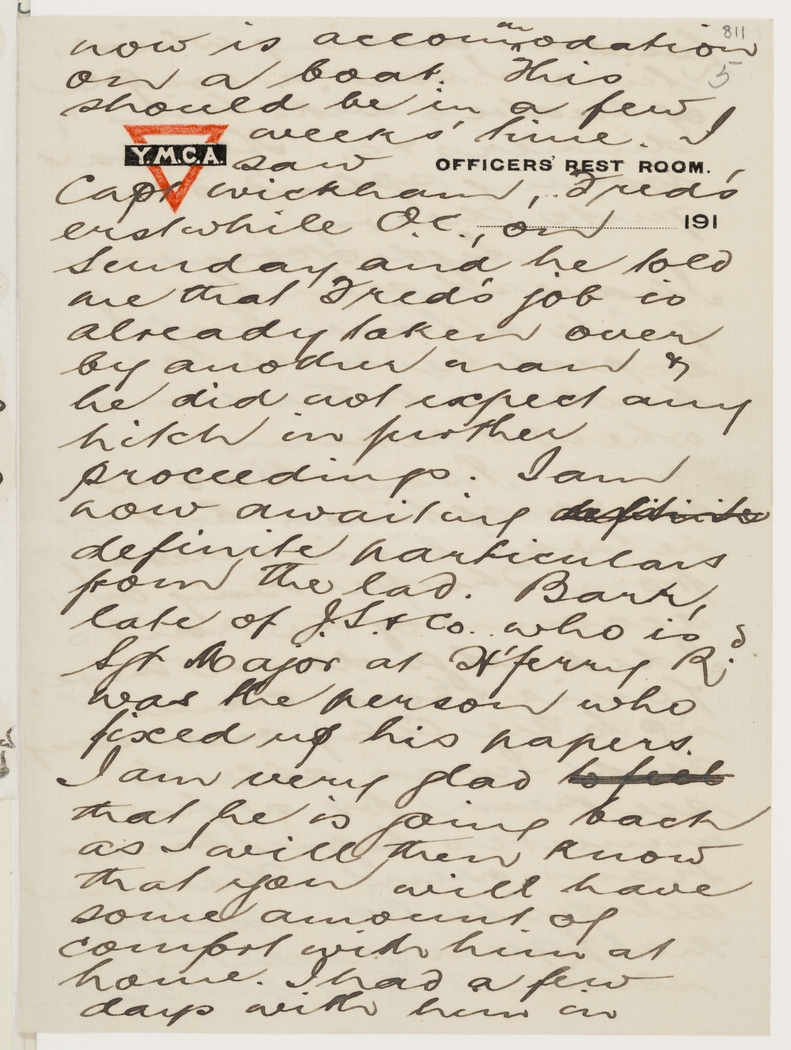 811
5
now is accommodation
on a boat. This
should be in a few
weeks' time. I
Y.M.C.A.
saw
OFFICERS' REST ROOM.
Capt Wickham, Fred's
erstwhile O.C., on
191
Sunday and he told
me that Fred's job is
already taken over
by another man &
he did not expect any
hitch in further
proceedings. I am
now awaiting
definite particulars
from the lad. Barr,
late of J.S. & Co. who is
Sgt Major at H'ferry Rd
was the person who
fixed up his papers.
I am very glad to feel
that he is going back
as I will then know
that you will have
some amount of
comfort with him at
home. I had a few
days with him in